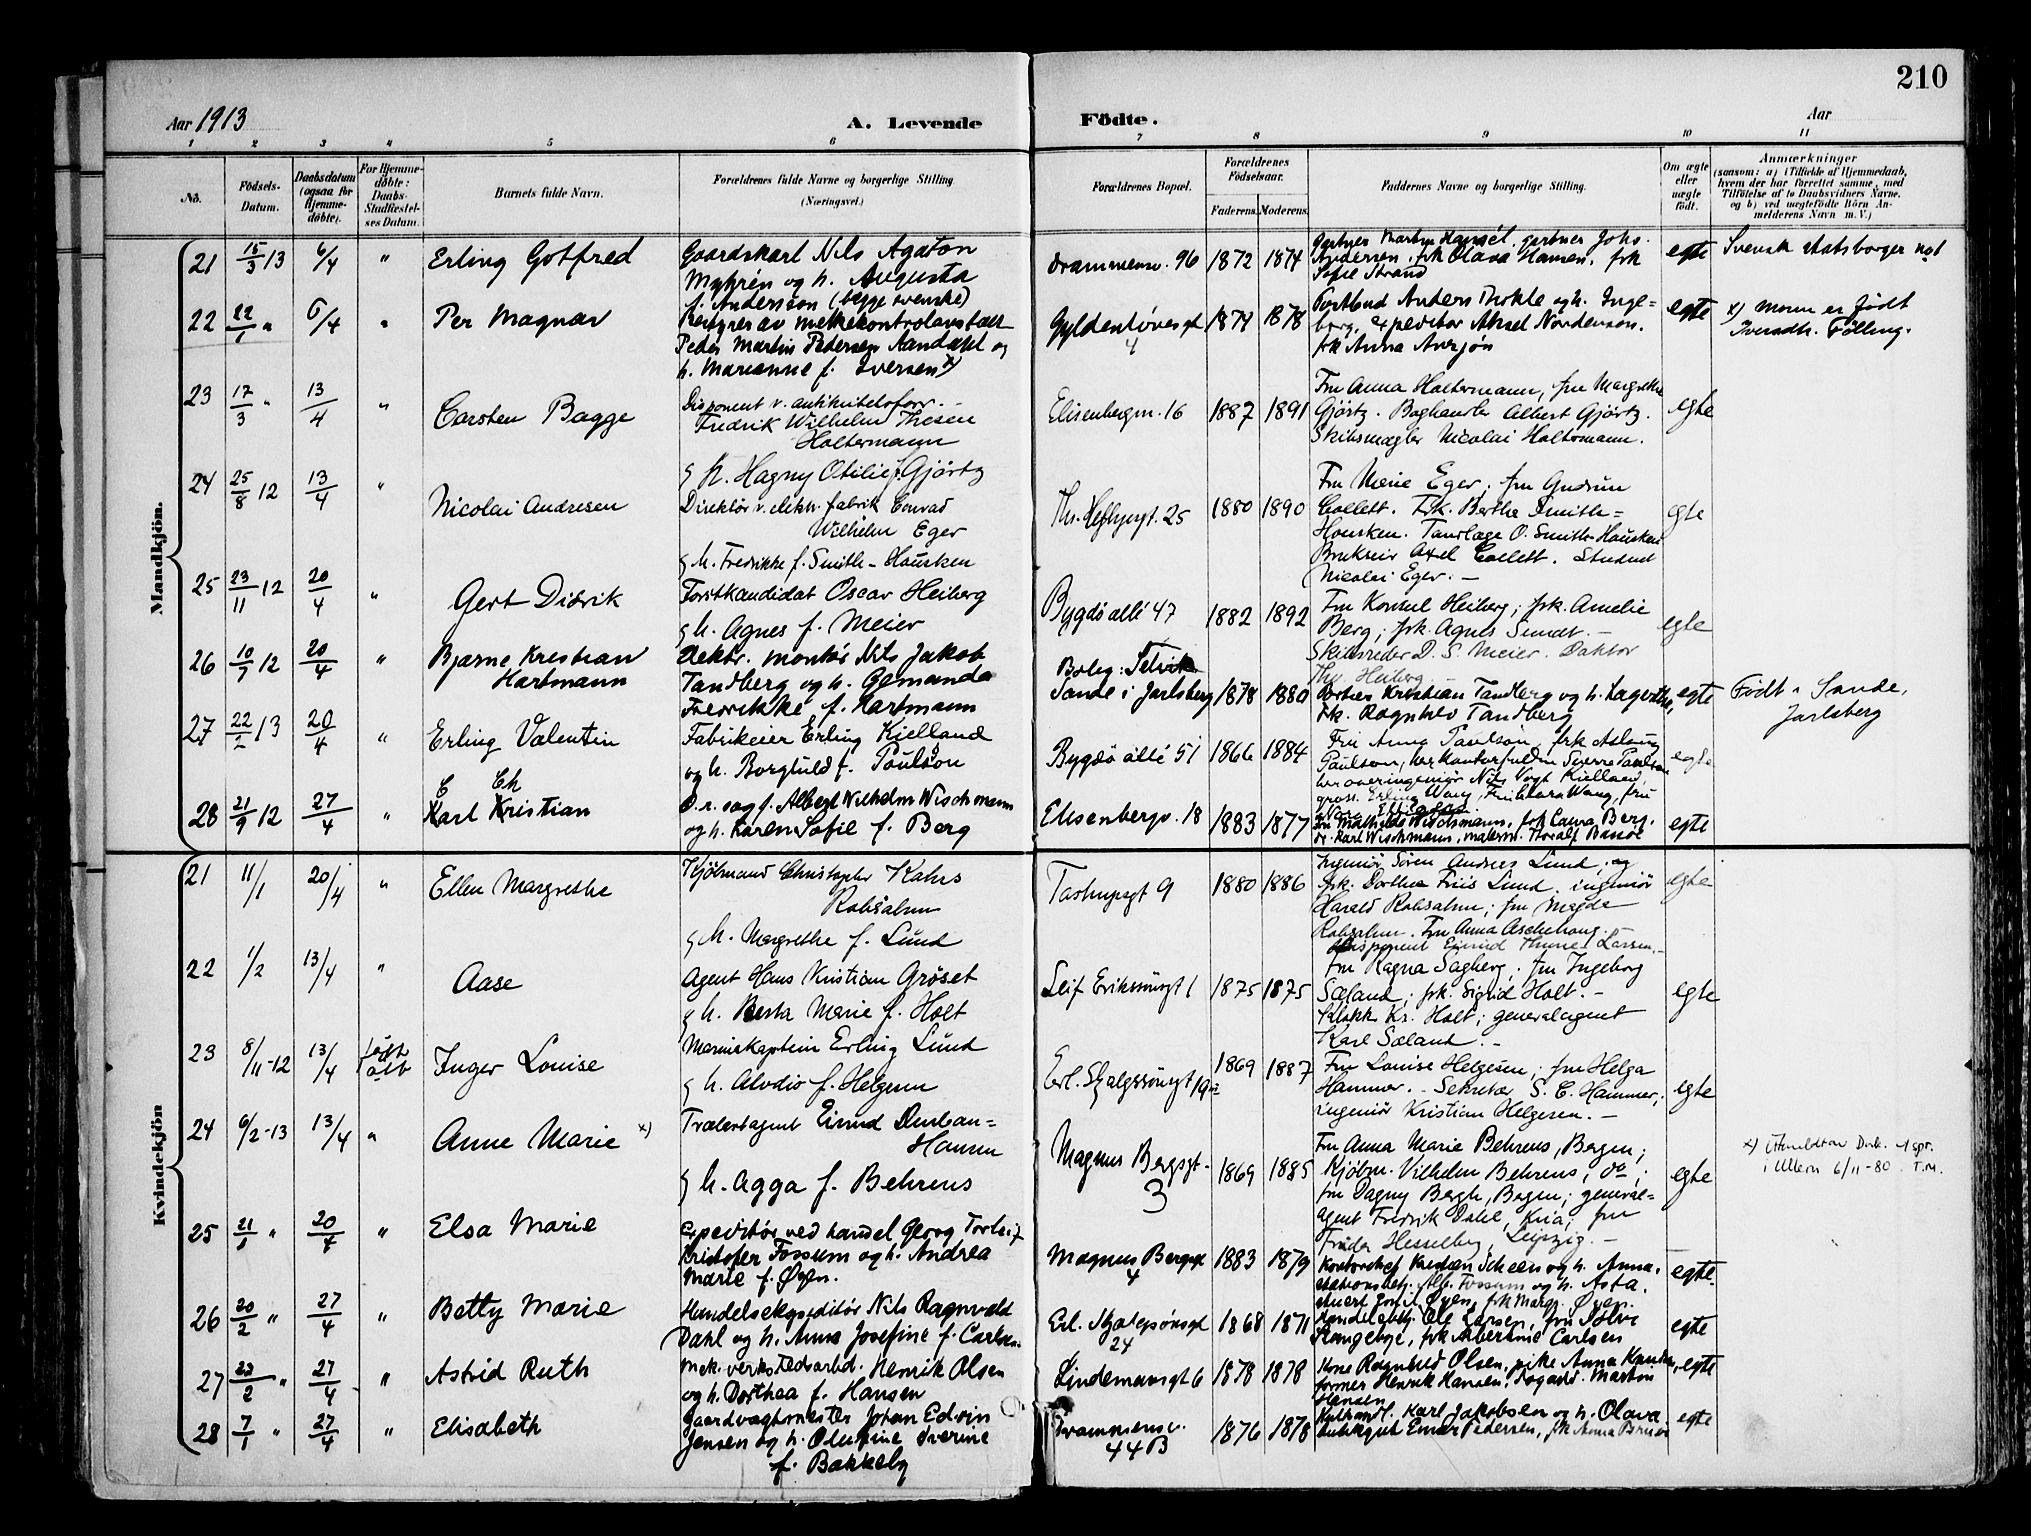 210
Aar 1913
A. Levende Födte.
Aar
1 2 3 4 5 6 7 8 9 10 11
No.
Födsels-Datum.
Daabsdatum (ogsaa for Hjemme-döbte).
For Hjemme-döbte: Daabs-Stadfæstel-ses Datum.
Barnets fulde Navn.
Forældrenes fulde Navne og borgerlige Stilling
(Næringsvei.)
Forældrenes Bopæl.
Forældrenes Födselsaar.
Faderens. Moderens.
Faddernes Navne og borgerlige Stilling.
Om ægte eller uægte födt.
Anmærkninger
(saasom: a) i Tilfælde af Hjemmedaab,
hvem der har forrettet samme, med
Tilföielse af to Daabsvidners Navne.
og b) ved uægtefödte Börn An-
melderens Navn m. V.)
Mandkjön.
21 15/3 13 6/4 " Erling Gotfred
Gaardskarl Nils Agaton
Myhrén og h. Augusta
f. Andersson (begge svenske)
Drammensv. 96 1872 1874
Gartner Martin Hansen, gartner Johs.
Andersen, frk Olava Hansen, frk
Sofie Strand
egte
Svensk statsborger
22 22/1 " 6/4 " Per Magnar
Bestyrer av melkekontrolanstalt
Peder Martin Pedersen Aandahl og
h. Marianne f. Iversen x)
Gyldenløvesgt 4 1874 1878
Postbud Anders Thokle og h. Inge=
borg, expeditør Aksel Nordenson.
frk Anna Aursjøn
egte
x) Moren er født
Iversdtr. Fölling.
23 17/3 " 13/4 " Carsten Bagge
Disponent v. antikvitetsforr. –
Fredrik Wilhelm Thesen
Holtermann
g h. Hagny Otilie f. Gjörtz
Elisenbergv. 16 1887 1891
Fru Anna Holtermann, fru Margrethe
Gjörtz. Boghandler Albert Gjörtz.
Skibsmægler Nicolai Holtermann.
egte
24 25/8 12 13/4 " Nicolai Andresen
Direktör v. elektr. fabrik Conrad
Wilhelm Eger
g h. Fredrikke f. Smith-Housken
Ths. Heftyesgt. 25 1880 1890
Fru Marie Eger, fru Gudrun
Collett. Frk. Berthe Smith=
Housken. Tandlæge O. Smith-Housken
Brukseier Axel Collett. Student
Nicolai Eger. –
egte
25 23/11 12 20/4 " Gert Didrik
Forstkandidat Oscar Heiberg
g h. Agnes f. Meier
Bygdö allé 47 1882 1892
Fru Konsul Heiberg; frk. Amelie
Berg; frk. Agnes Sundt. –
Skibsreder D. S. Meier. Doktor
Thv. Heiberg. –
egte
26 10/7 12 20/4 " Bjarne Kristian
Hartmann
Elektr. montør Nils Jakob
Tandberg og h. Gemanda
Fredrikke f. Hartmann
Bolig: Selvik
Sande i Jarlsberg 1878 1880
Portner Kristian Tandberg og h. Lagertha,
frk. Ragnhild Tandberg
egte
Født i Sande,
Jarlsberg
27 22/2 13 20/4 " Erling Valentin
Fabrikeier Erling Kielland
og h. Borghild f. Paulson
Bygdö allé 51 1866 1884
Fru Anna Paulson, frk Aslaug
Paulson, hr kontorfuldm Sverre Paulson
hr overingeniør Nils Vogt Kielland,
gross. Erling Wang, Fru Klara Wang, fru
egte
28 21/9 12 27/4 " C Ch
Karl Kristian
O.r. sag f. Albert Wilhelm Wischmann
og h. Karen Sofie f. Berg
Elisenbergv. 18 1883 1877
Fru Mathilde Wischmann, frk Laura Berg.
dr. Karl Wischmann, malerm. Thoralf Bassøe
egte
Kvindekjön
21 11/1 20/4 " Ellen Margrethe
Kjöbmand Christopher Kahrs
Robsahm
g h. Margrethe f. Lund
Tostrupsgt 9 1880 1886
Ingeniør Sören Andreas Lund, og
frk. Dorthea Friis Lund. ingeniør
Harald Robsahm; fru Magda
Robsahm. Fru Anna Aschehoug. –
egte
22 1/2 13/4 " Aase
Agent Hans Kristian Gröset
g h. Berta Marie f. Holt
Leif Erikssönsgt 1 1875 1875
Disponent Eivind Thune Larsen. –
fru Ragna Sagberg; fru Ingeborg
Sæland; frk. Sigrid Holt. –
Klokk. Kr. Holt; generalagent
Karl Sæland. –
egte
23 8/11-12 13/4 Inger Louise
Marinekaptein Erling Lund
g h. Alvdio f. Helgesen
Erl. Skjalgssönsgt 19 1869 1887
Fru Louise Helgesen; fru Helga
Hammer. – Sekretær S. C. Hammer;
ingeniör Kristian Helgesen. –
egte
24 6/2-13 13/4 " Anne Marie x)
Trælastagent Eivind Durban=
Hansen
g h. Agga f. Behrens
Magnus Bergsgt. 3 1869 1885
Fru Anna Marie Behrens, Bergen;
Kjöbm. Vilhelm Behrens, do;
fru Dagny Bergh, Bergen; general=
agent Fredrik Dahl, Kria; fru
Hesselberg, Leipzig. –
egte
i Ullern 6/11-80 T.M.
25 21/1 " 20/4 " Elsa Marie
Expeditör ved handel Georg Torleif
Kristofer Fossum og h. Andrea
Marie f. Øyen.
Magnus Bergsgt 4 1883 1879
Kontorchef Kristian Scheen og h. Anna.
stationsbetj. Alf. Fossum og h. Asta.
stuert Josef Øyen, frk Margr. Øyen.
egte.
26 20/2 " 27/4 " Betty Marie
Handelsekspeditör Nils Ragnvald
Dahl og h. Anna Josefine f. Carlsen.
Erl. Skjalgsönsgt 24 1868 1871
Handelsbetj. Ole Larsen, fru Sölvi
Stangebye, frk Albertine Carlsen
egte
27 23/2 " 27/4 " Astrid Ruth
Mek. verkstedsarbd. Henrik Olsen
og h. Dorthea f. Hansen
Lindemansgt 6 1878 1878
Kone Ragnhild Olsen, pike Anna Knudsen,
former Henrik Hansen, Martin
Hansen
egte
28 7/1 " 27/4 " Elisabeth
Gaardvagtmester Johan Edvin
Jensen og h. Olufine Sverine
f. Bakkeby
Drammensv.
44 B 1876 1878
Kulhandl. Karl Jakobsen og h. Olava.
Einar Pedersen, frk Anna
egte